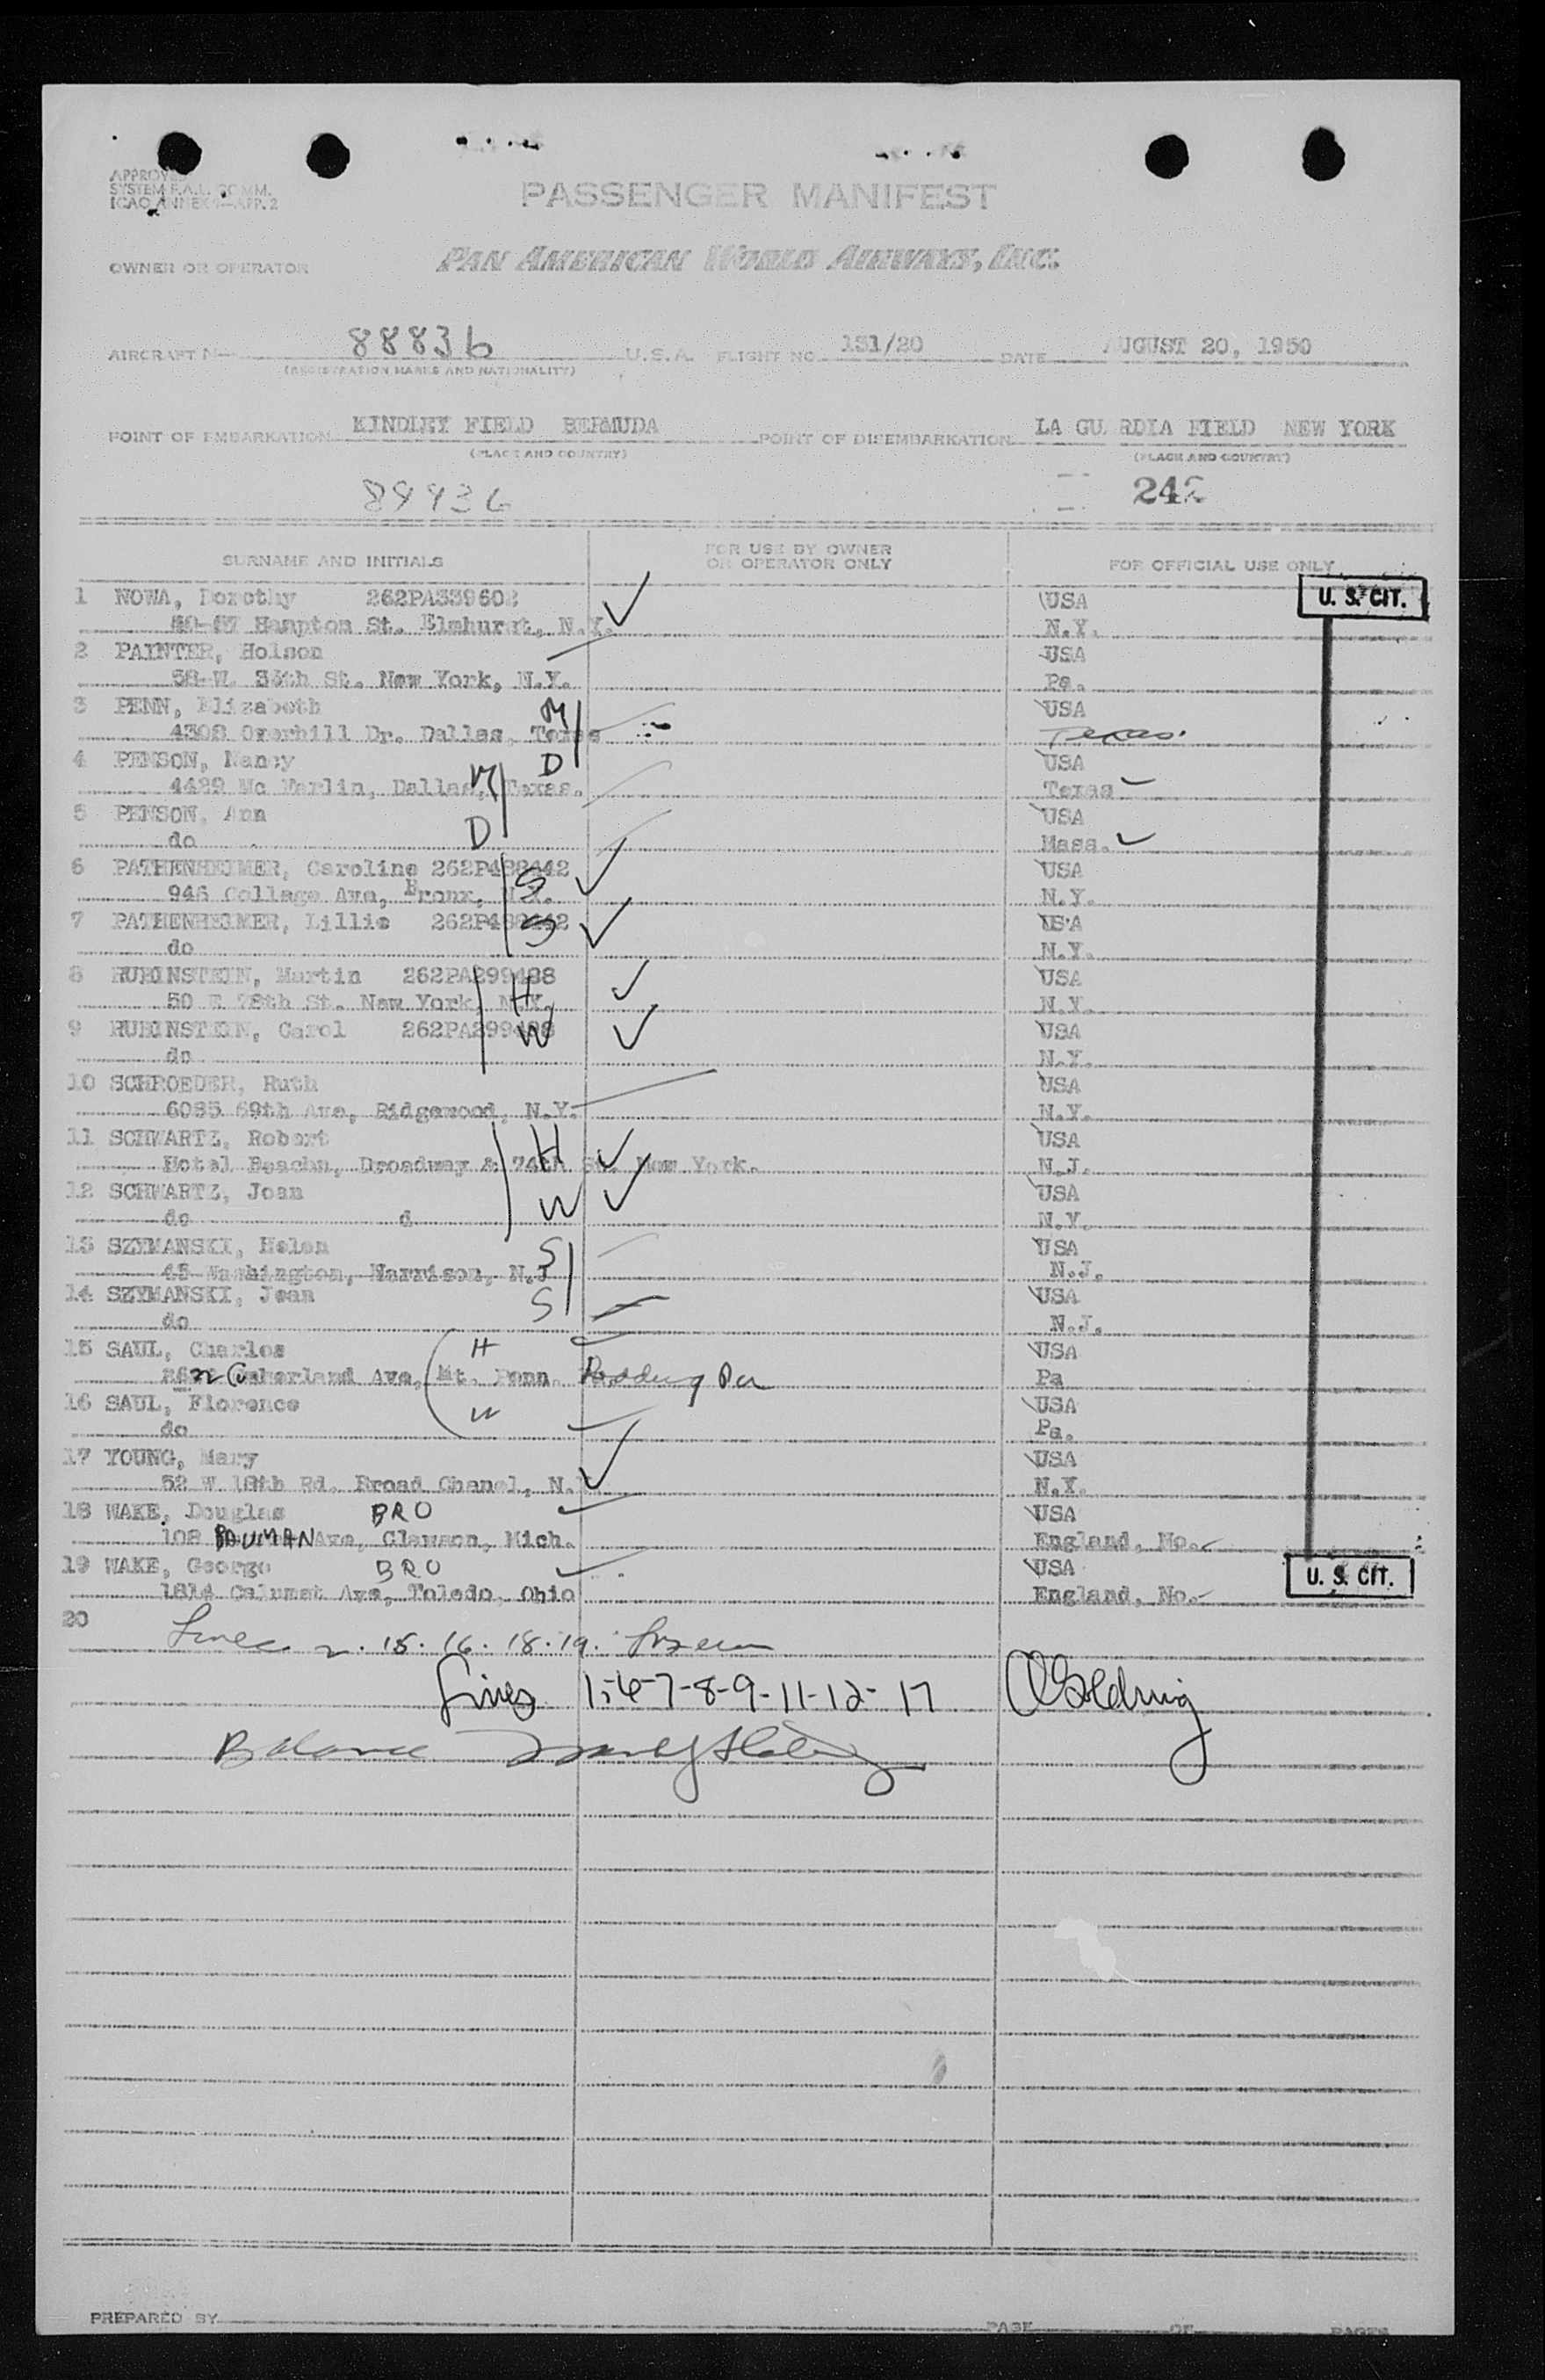 APPROVED
SYSTEM F.A.L. COMM.
ICAO ANNEX 9—APP. 2
PASSENGER MANIFEST
OWNER OR OPERATOR PAN AMERICAN WORLD AIRWAYS, INC.
AIRCRAFT N— 88836 U.S.A. FLIGHT NO. 131/20 DATE AUGUST 20, 1950
(REGISTRATION MARKS AND NATIONALITY)
POINT OF EMBARKATION KINDLEY FIELD BERMUDA POINT OF DISEMBARKATION LA GUARDIA FIELD NEW YORK
(PLACE AND COUNTRY) (PLACE AND COUNTRY)
242
SURNAME AND INITIALS FOR USE BY OWNER OR OPERATOR ONLY FOR OFFICIAL USE ONLY
1 NOWA, Dorothy 262PA339602 USA U. S. CIT.
Hampton St. Elmhurst, N.Y. N.Y.
2 PAINTER, Holson USA
58 W. St. New York, N.Y. Pa.
3 PENN, Elizabeth M USA
4308 Overhill Dr. Dallas, Texas Texas
4 PENSON, Nancy D USA
4429 Mc Farlin, Dallas, Texas. M Texas
5 PENSON, Ann USA
do D Mass.
6 PATHENHEIMER, Caroline 262P488442 USA
946 College Ave, Bronx, N.Y. S N.Y.
7 PATHENHEIMER, Lillie 262P488442 S USA
do N.Y.
8 RUBINSTEIN, Martin 262PA299488 USA
50 E 78th St. New York, N.Y. H N.Y.
9 RUBINSTEIN, Carol 262PA299488 W USA
do N.Y.
10 SCHROEDER, Ruth USA
6085 69th Ave, Ridgewood, N.Y. N.Y.
11 SCHWARTZ, Robert H USA
Hotel Broadway & 74th St. New York. N.J.
12 SCHWARTZ, Joan W USA
do d N.Y.
13 SZYMANSKI, Helen S USA
45 Washington, Harrison, N.J N.J.
14 SZYMANSKI, Jean S USA
do N.J.
15 SAUL, Charles H USA
Cumberland Ave, Mt. Penn. Reading Pa Pa
16 SAUL, Florence W USA
do Pa.
17 YOUNG, Mary USA
52 W 18th Rd. Broad Chanel, N.Y. N.Y.
18 WAKE, Douglas BRO USA
108 BAUMAN Ave, Clawson, Mich. England, No.
19 WAKE, George BRO USA U. S. CIT.
1814 Calumet Ave, Toledo, Ohio England, No.
20
Lines 2. 15. 16. 18. 19.
Lines 1-6-7-8-9-11-12-17
Balance
PREPARED BY PAGE OF PAGES